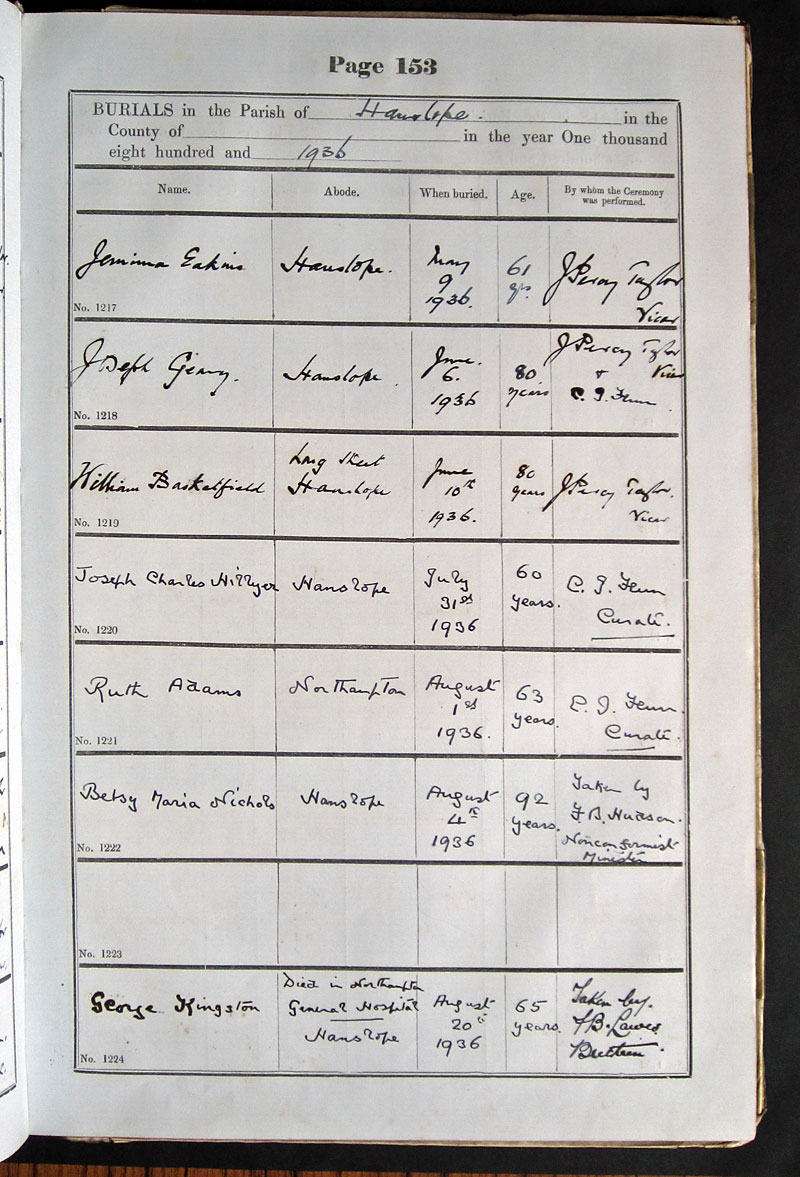 Page 153
BURIALS in the Parish of Hanslope. in the
County of in the year One thousand
eight hundred and 1936
Name. Abode. When buried. Age. By whom the Ceremony was performed.
Jemima Eakins Hanslope. May 9 1936. 61 yrs. J Percy Taylor Vicar
No. 1217
Joseph Geary. Hanslope. June. 6. 1936 80 years J Percy Taylor Vicar + C. J. Fenn.
No. 1218
William Basketfield Long Street Hanslope June 10th 1936. 80 years J Percy Taylor. Vicar
No. 1219
Joseph Charles Hillyer Hanslope July 31st 1936 60 years. C. J. Fenn Curate.
No. 1220
Ruth Adams Northampton August 1st 1936. 63 years. C. J. Fenn. Curate.
No. 1221
Betsy Maria Nichols Hanslope August 4th 1936 92 years. Taken by F. B. Hudson. Nonconformist Minister
No. 1222
No. 1223
George Kingston Died in Northampton General Hospital Hanslope August 20th 1936 65 years. Taken by.
No. 1224